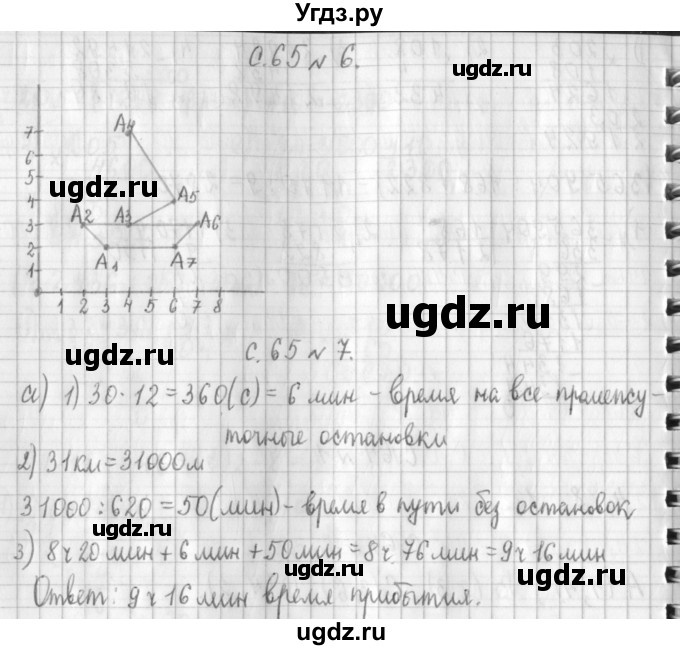 Угдз.ру
с.65 № 6.
ugdz.ru
7 A4
6
5
ugdz.ru
4 A5
A2 A3 A6
3
2
A1 A7
1
1 2 3 4 5 6 7 8
ugdz.ru
с.65 № 7.
ugdz.ru
а) 1) 30·12=360(с)=6 мин - время на все промежу-
точные остановки
2) 31км=31000м
31000:620=50(мин)- время в пути без остановок
ugdz.ru
3) 8ч20мин+6мин+50мин=8ч.76мин=9ч16мин
Ответ: 9ч16мин время прибытия.
ugdz.ru
ugdz.ru
ugdz.ru